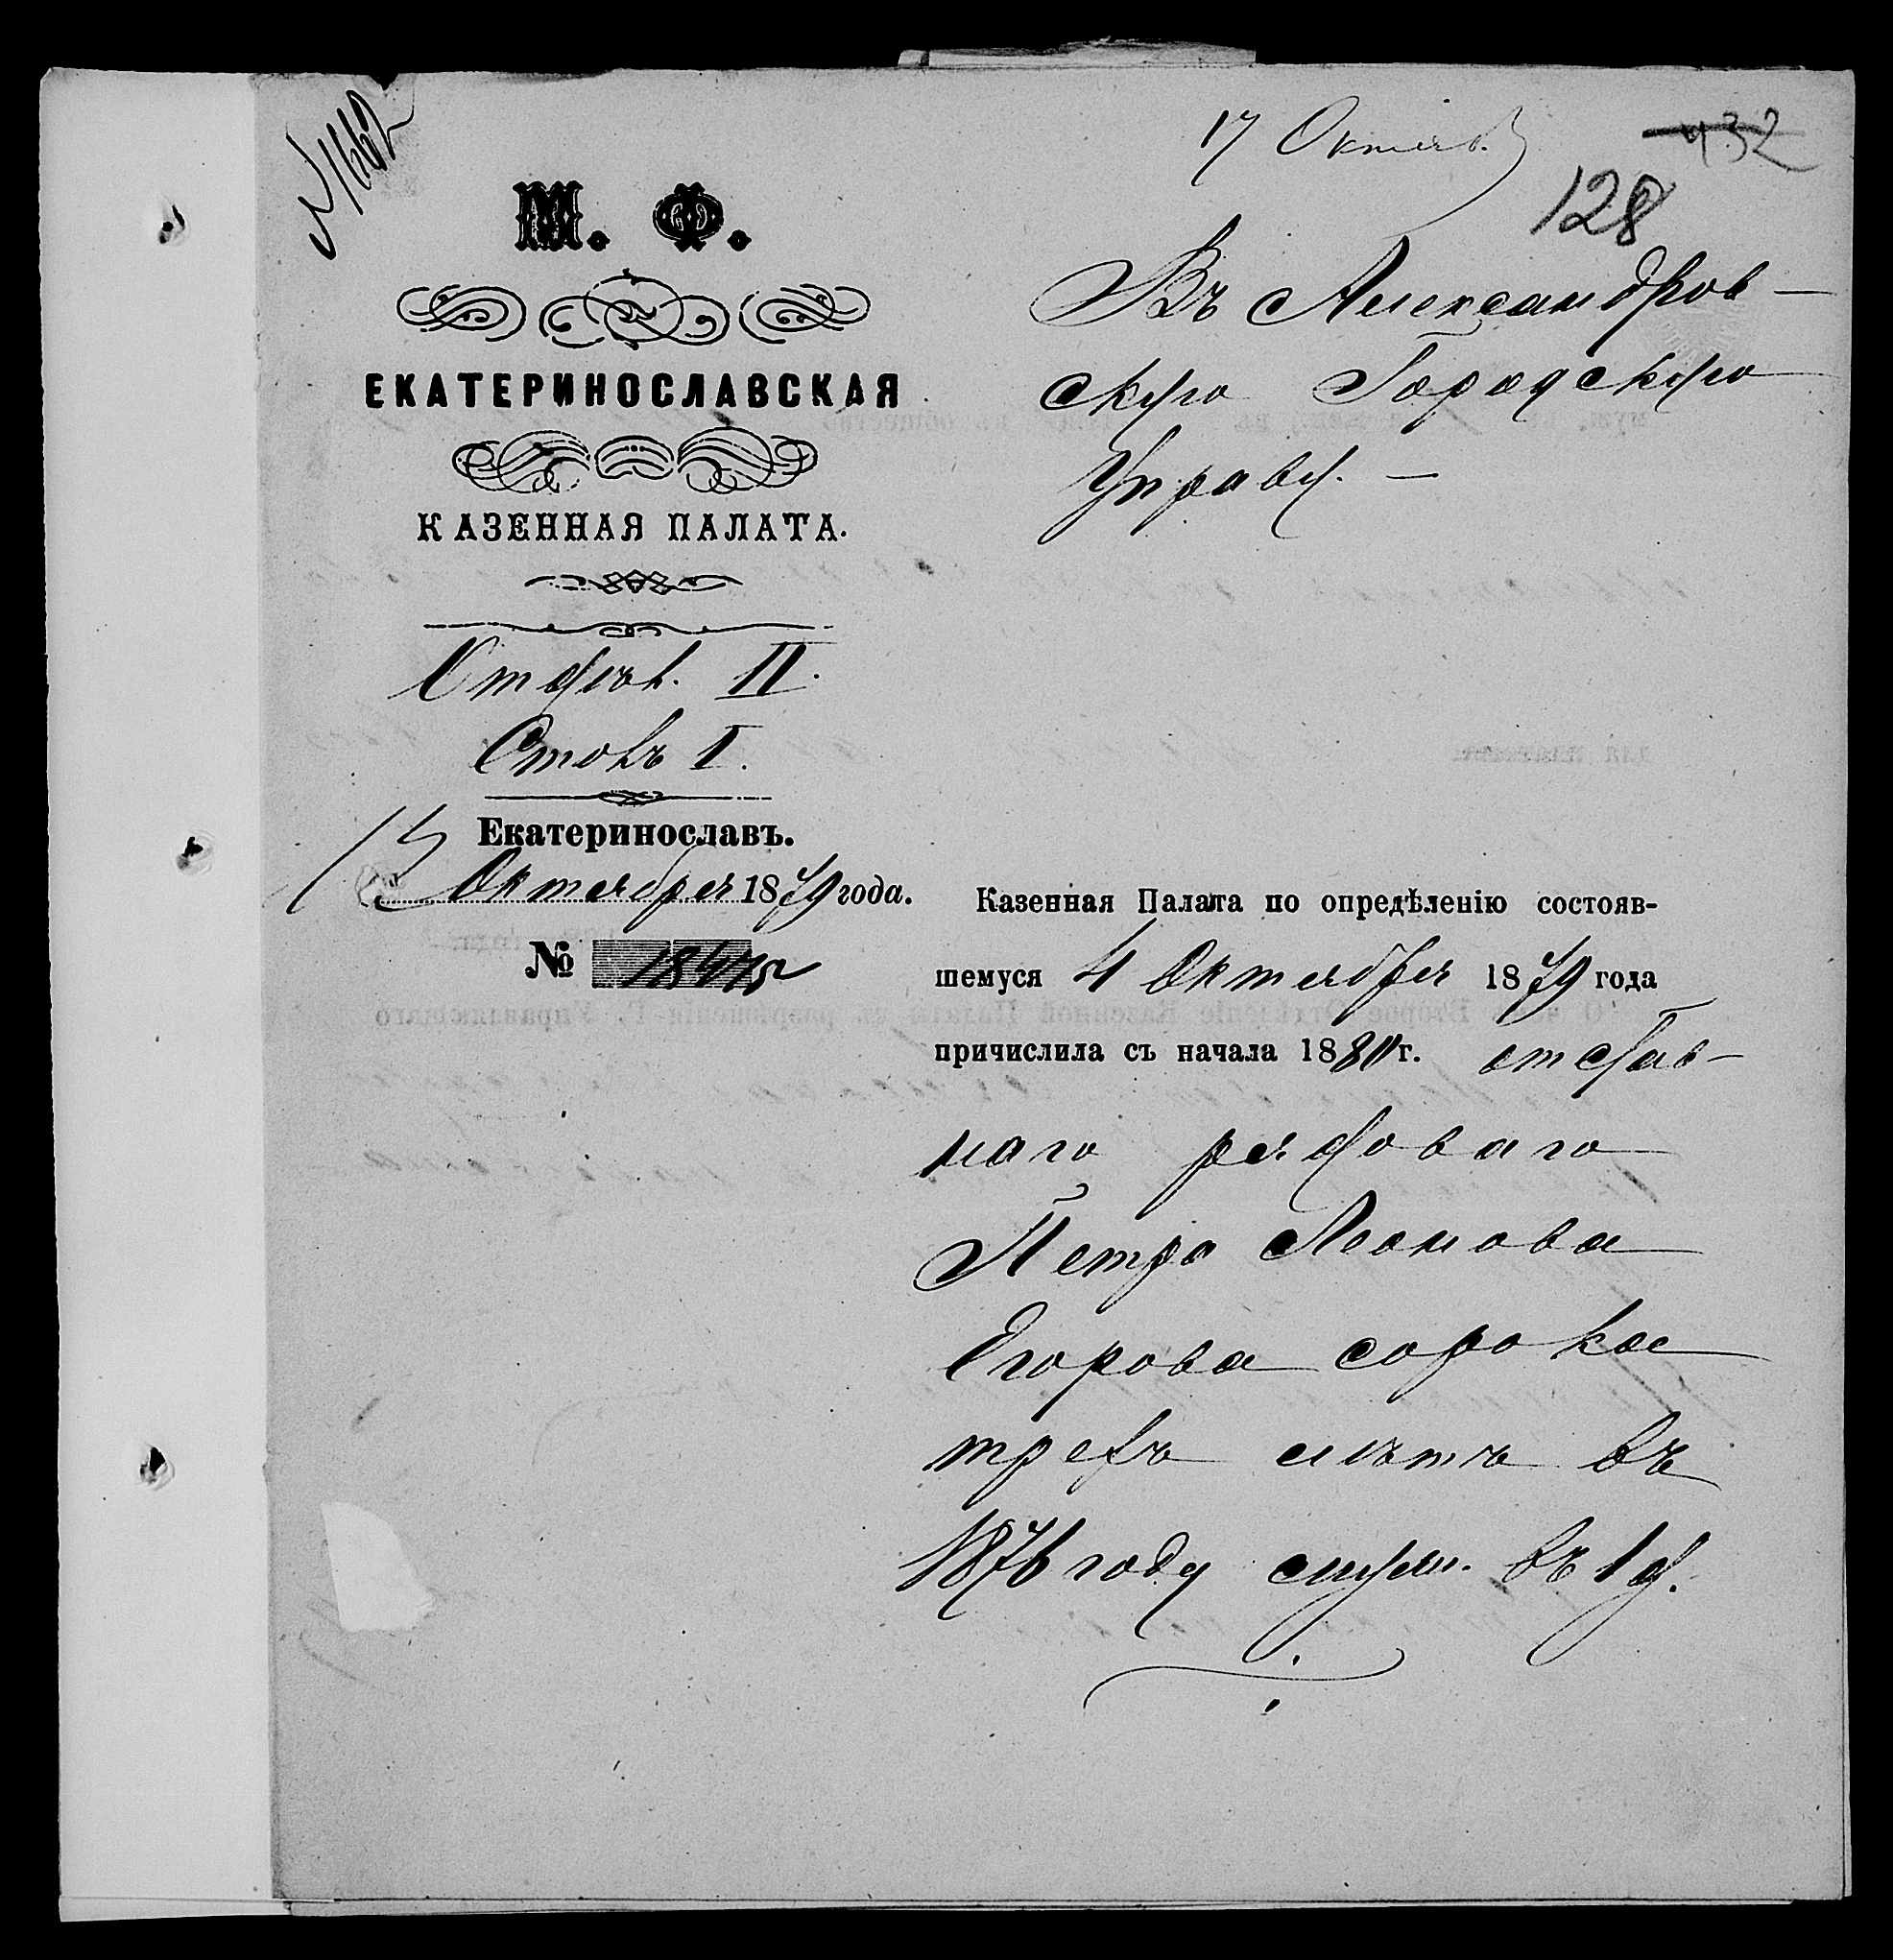 N 1662
17 Октяб.
432
128
М. Ф.
ЕКАТЕРИНОСЛАВСКАЯ
КАЗЕННАЯ ПАЛАТА.
Отдѣл. II.
Столъ I.
Екатеринославъ.
Октября 1879 года.
№
Въ Александров-
скую Городскую
Управу. —
Казенная Палата по опредѣленію состояв-
шемуся 4 Октября 1879 года
причислила съ начала 1880 г. отстав-
наго рядоваго
Петра Леонова
Егорова сорока
трехъ лѣтъ въ
1876 году въ 1 д.